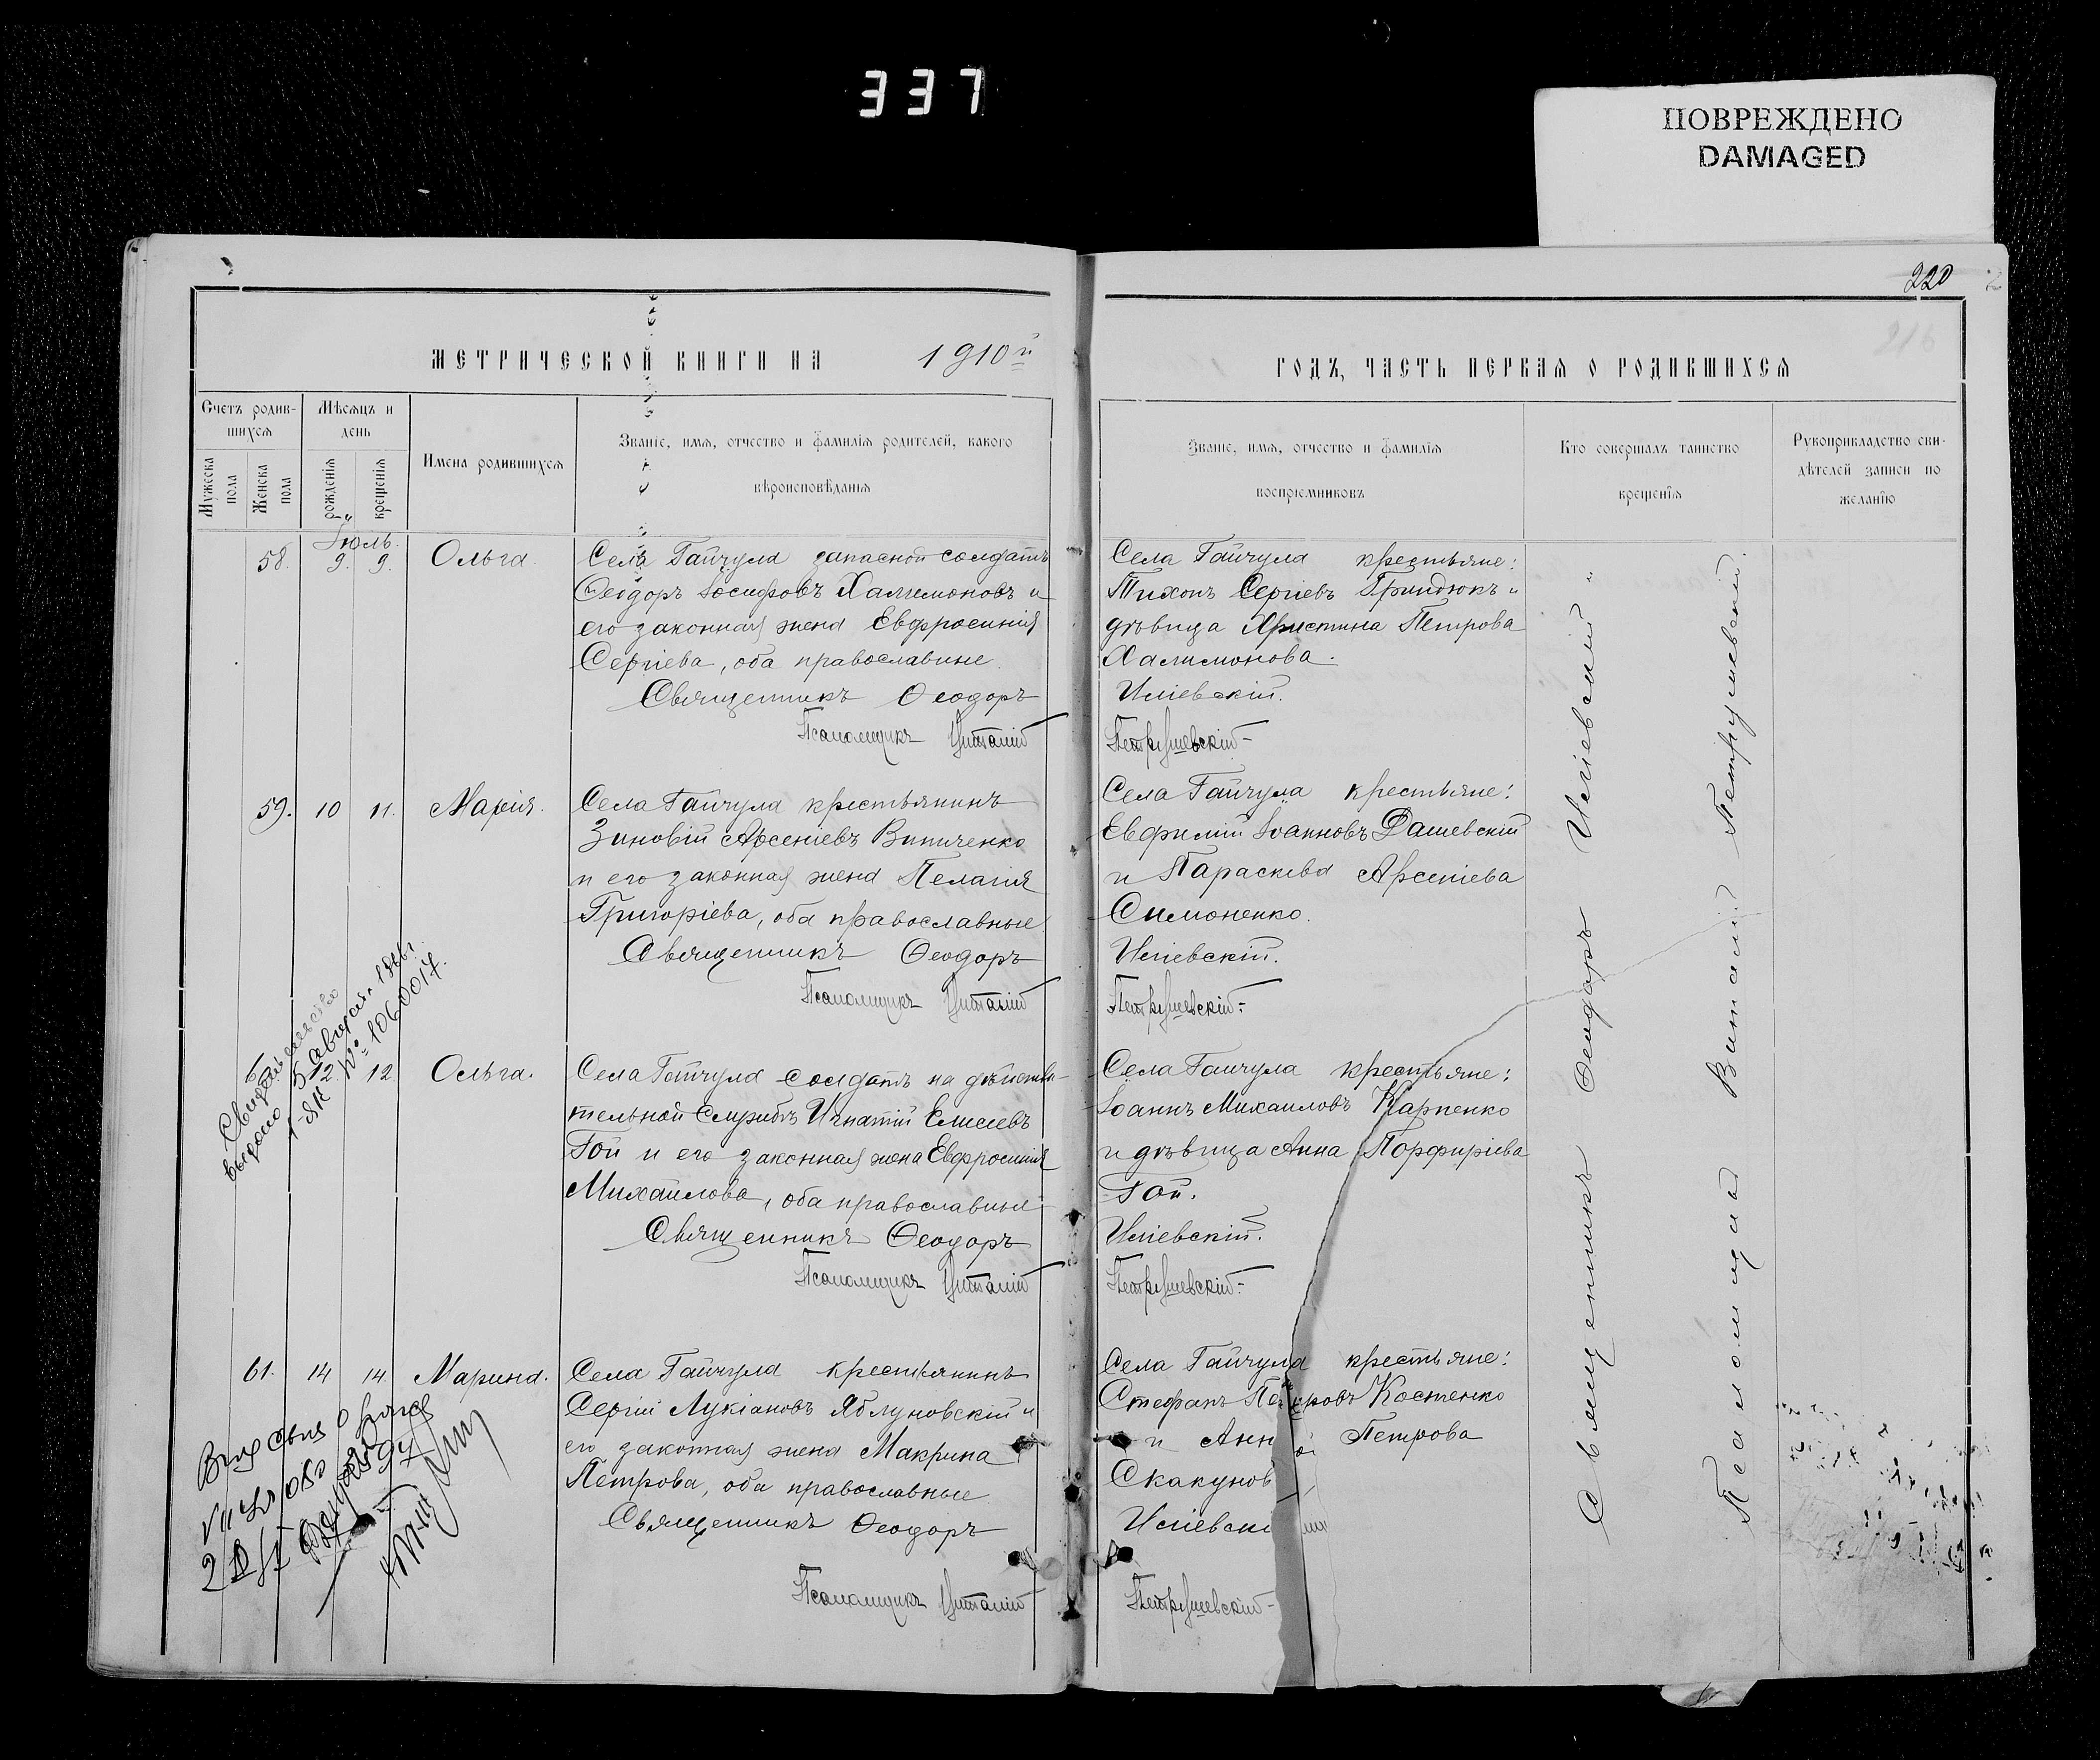 337
ПОВРЕЖДЕНО
DAMAGED
220
МЕТРИЧЕСКОЙ КНИГИ НА 1910й
ГОДЪ, ЧАСТЬ ПЕРВАЯ О РОДИВШИХСЯ
Счетъ родив-
шихся
Мужеска
пола
Женска
пола
Мѣсяцъ и
день
рожденія
крещенія
Имена родившихся
Званіе, имя, отчество и фамилія родителей, какого
вѣроисповѣданія
Званіе, имя, отчество и фамилія
воспріемниковъ
Кто совершалъ таинство
крещенія
Рукоприкладство сви-
дѣтелей записи по
желанію
Іюль
58. 9. 9. Ольга.
Села Гайчула запасной солдатъ
Ѳеодоръ Іосифовъ Халимоновъ и
его законная жена Евфросинія
Сергіева, оба православные.
Священникъ Ѳеодоръ
Псаломщикъ Виталій
Села Гайчула крестьяне:
Тихонъ Сергіевъ Гриндюкъ и
дѣвица Христина Петрова
Халимонова.
Исіевскій.
Петрушевскій
59. 10 11. Марія.
Села Гайчула крестьянинъ
Зиновій Арсеніевъ Винниченко
и его законная жена Пелагія
Григоріева, оба православные
Священникъ Ѳеодоръ
Псаломщикъ Виталій
Села Гайчула крестьяне:
Евфимій Іоанновъ Дашевскій
и Параскева Арсеніева
Симоненко.
Исіевскій.
Петрушевскій
Свидѣтельство
выдано 5 августа 1946 г.
№ 1060017.
12. 12 Ольга.
Села Гайчула солдатъ на дѣйстви-
тельной службѣ Игнатій Елисеевъ
Гой и его законная жена Евфросинія
Михайлова, оба православные
Священникъ Ѳеодоръ
Псаломщикъ Виталій
Села Гайчула крестьяне:
Іоаннъ Михаиловъ Карпенко
и дѣвица Анна Порфиріева
Гой.
Исіевскій.
Петрушевскій
61. 14 14 Марина.
Села Гайчула крестьянинъ
Сергій Лукіановъ Яблуновскій и
его законная жена Макрина
Петрова, оба православные
Священникъ Ѳеодоръ
Псаломщикъ Виталій
Села Гайчула крестьяне:
Стефанъ Петровъ Костенко
и Анна Петрова
Скакунов
Исіевскі
Петрушевскій
Священникъ Ѳеодоръ Исіевскій
Псаломщикъ Виталій Петрушевскій.